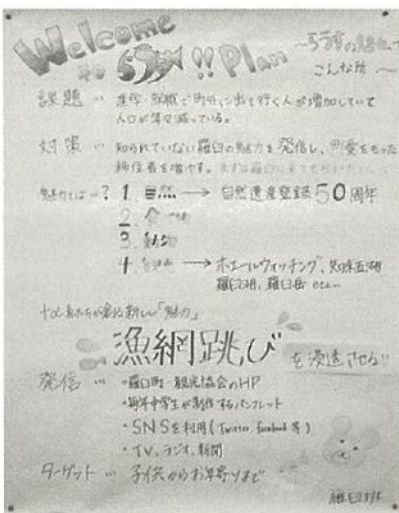 Welcome
to らうす!! Plan ～らうすの魅力って
こんな所～
課題… 進学・就職で町外に出て行く人が増加していて
人口が年々減っている。
対策… 知られていない羅臼の魅力を発信し、
移住者を増やす。まずは羅臼に来てもらいたい
魅力とは…? 1. 自然 → 自然遺産登録50周年
2. 食
3. 動物
4. → ホエールウォッチング、知床五湖
羅臼湖、羅臼岳 etc…
+α 私たちが創る新しい「魅力」
漁網跳び を浸透させる!!
発信… ・羅臼町・観光協会のHP
・毎年中学生が制作するパンフレット
・SNSを利用(Twitter, facebook 等)
・TV、ラジオ、新聞
ターゲット… 子供からお年寄りまで